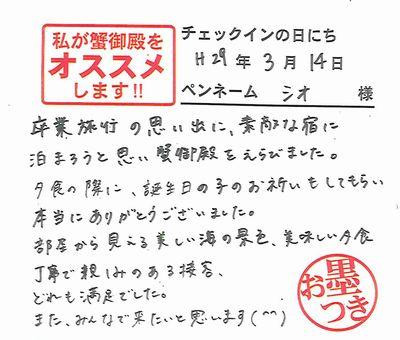 私が蟹御殿を
オススメ
します!!
チェックインの日にち
H29年3月14日
ペンネーム シオ 様
卒業旅行の思い出に、素敵な宿に
泊まろうと思い蟹御殿をえらびました。
夕食の際に、誕生日の子のお祝いもしてもらい
本当にありがとうございました。
部屋から見える美しい海の景色、美味しい夕食
丁寧で親しみのある接客、
どれも満足でした。
また、みんなで来たいと思います(^^)
お墨つき